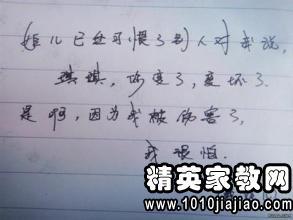 姐儿已经习惯了别人对我说，
琪琪，你变了，变坏了．
是啊，因为我被伤害了，
我很怕．
精英家教网
www.1010jiajiao.com